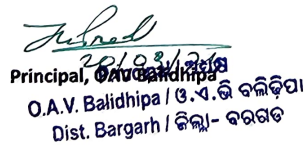 20/03/24
Principal, OAV Balidhipa
O.A.V. Balidhipa / ଓ.ଏ.ଭି ବଲିଢ଼ିପା
Dist. Bargarh / ଜିଲ୍ଲା- ବରଗଡ